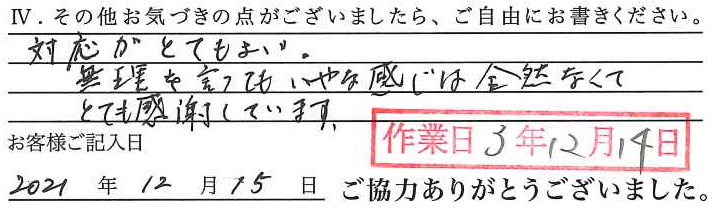 Ⅳ．その他お気づきの点がございましたら、ご自由にお書きください。
対応がとてもよい。
無理を言ってもいやな感じは全然なくて
とても感謝しています。
お客様ご記入日
作業日 3年12月14日
2021 年 12 月 15 日 ご協力ありがとうございました。